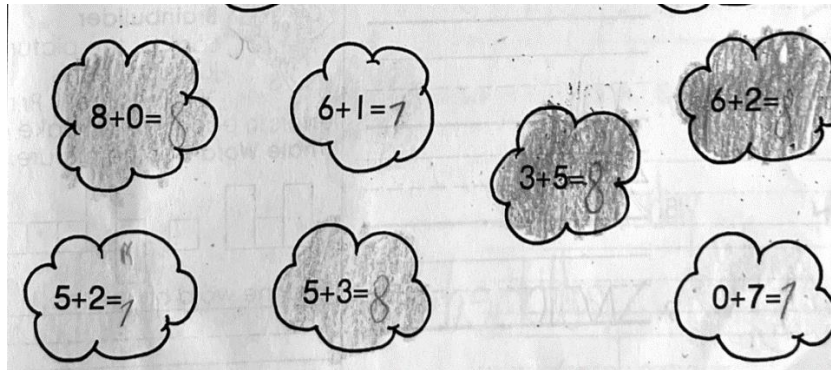 8+0=8
6+1=7
6+2=8
3+5=8
5+2=7
5+3=8
0+7=7